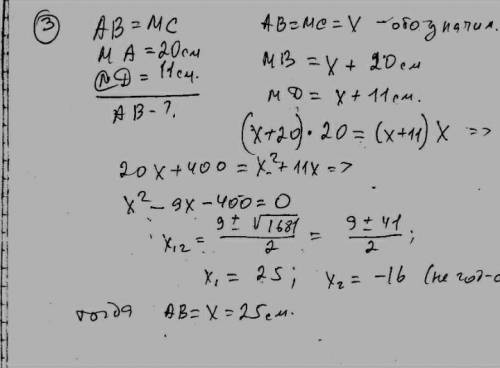 ③ AB = MC
MA = 20см
MD = 11см.
AB - ?
AB = MC = X - обозначим.
MB = X + 20см
MD = X + 11см.
(X+20)·20 = (X+11)X =>
20X + 400 = X² + 11X =>
X² - 9X - 400 = 0
X₁,₂ = (9 ± √1681)/2 = (9 ± 41)/2;
X₁ = 25; X₂ = -16 (не
тогда AB = X = 25см.